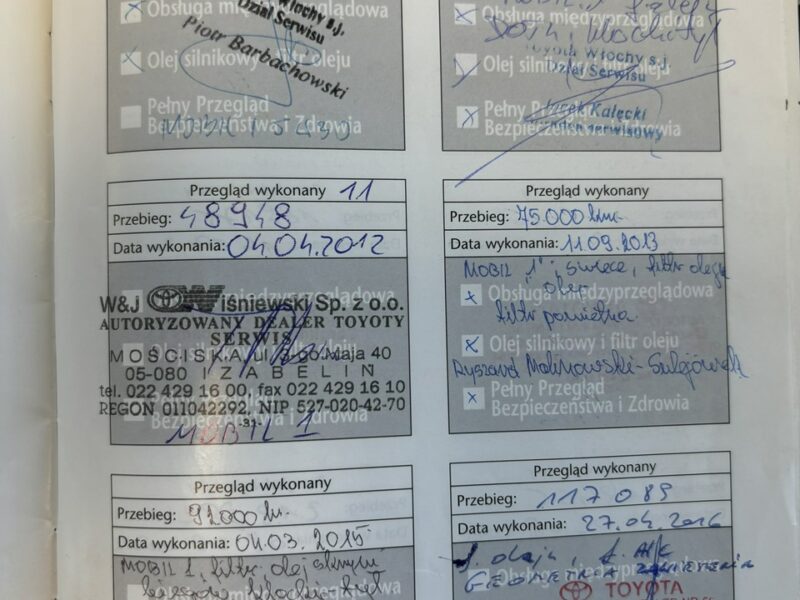 Włochy s.j.
Obsługa międzyprzeglądowa
Dział Serwisu
Piotr Barbachowski
Olej silnikowy i filtr oleju
Pełny Przegląd
Bezpieczeństwa i Zdrowia
Obsługa międzyprzeglądowa
Toyota Włochy s.j.
Olej silnikowy i filtr oleju
Dział Serwisu
Jacek Kałęcki
Pełny Przegląd
Bezpieczeństwa i Zdrowia
Przegląd wykonany 11
Przebieg: 48948
Data wykonania: 04.04.2012
W&J Wiśniewski Sp. z o.o.
AUTORYZOWANY DEALER TOYOTY
SERWIS
MOŚCISKA, ul. 3-go Maja 40
05-080 IZABELIN
tel. 022 429 16 00, fax 022 429 16 10
REGON 011042292, NIP 527-020-42-70
-33-
MOBIL 1
Przegląd wykonany
Przebieg: 75.000 km
Data wykonania: 11.09.2013
MOBIL 1, świece, filtr oleju
Obsługa międzyprzeglądowa
filtr powietrza
Olej silnikowy i filtr oleju
Ryszard Malinowski-Sulejówek
Pełny Przegląd
Bezpieczeństwa i Zdrowia
Przegląd wykonany
Przebieg: 92000 km.
Data wykonania: 04.03.2015
MOBIL 1, filtr, olej
Przegląd wykonany
Przebieg: 117 089
Data wykonania: 27.04.2016
GEOMETRIA
TOYOTA